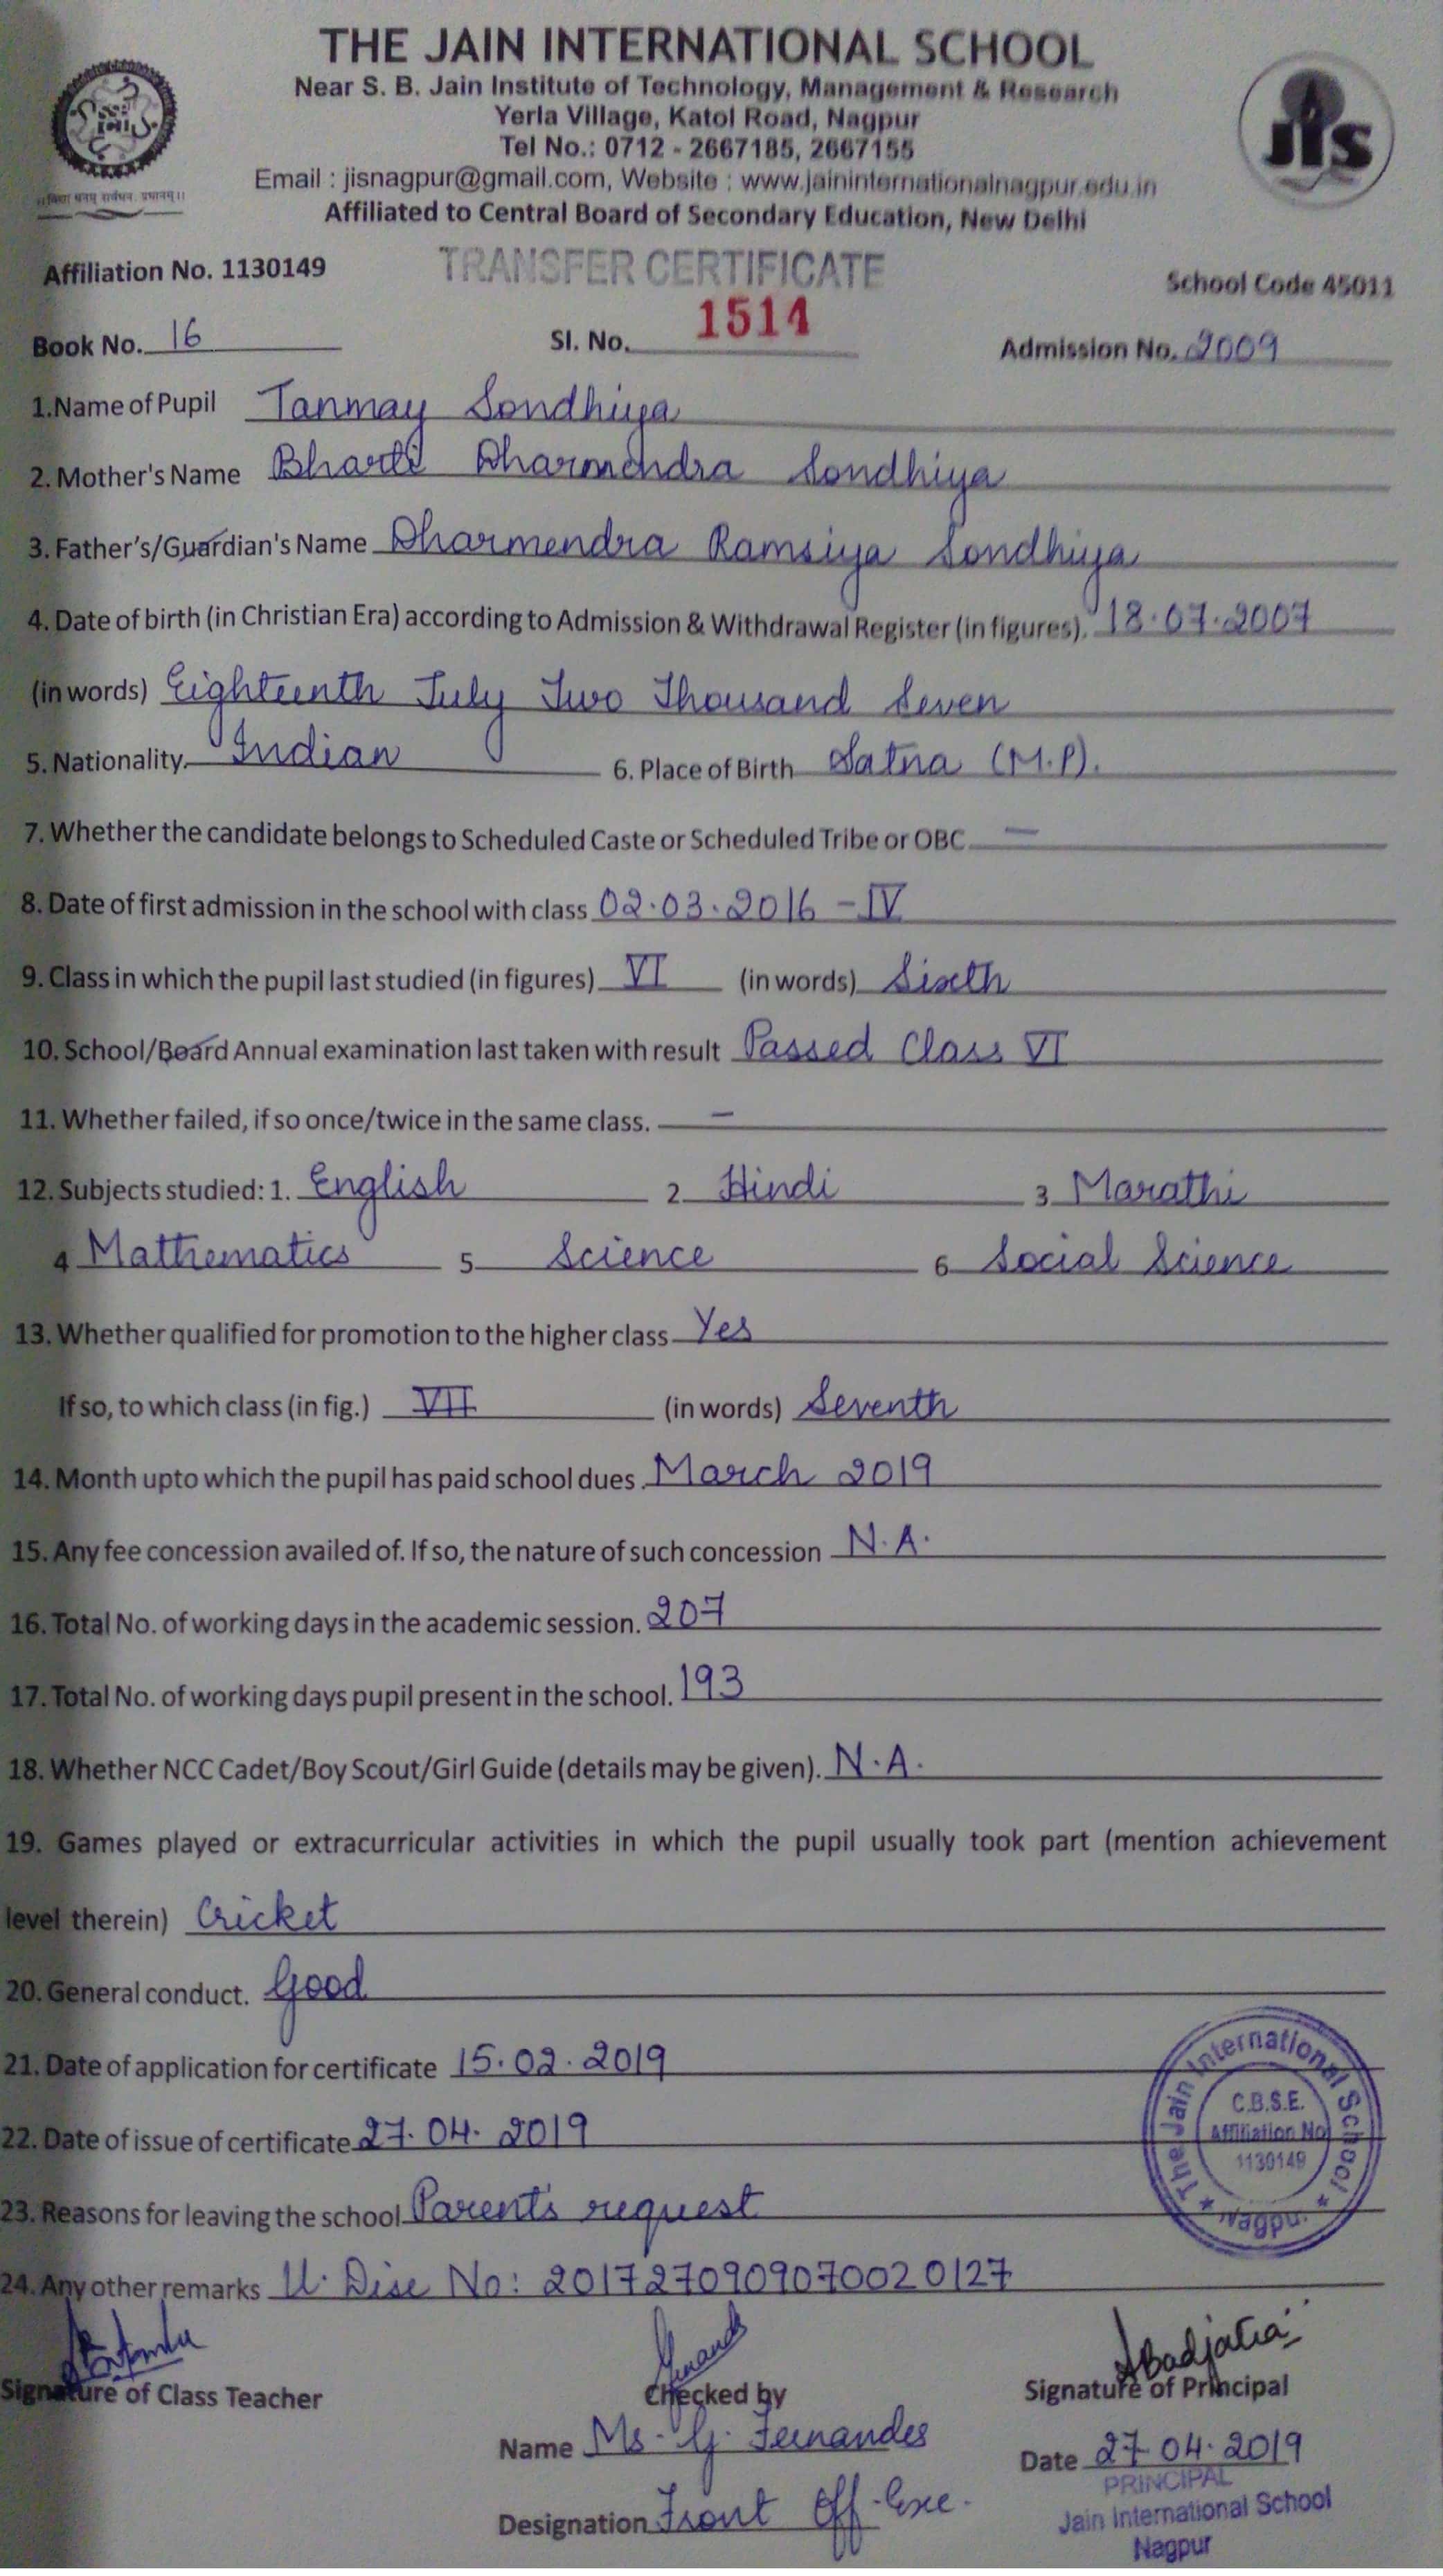 THE JAIN INTERNATIONAL SCHOOL
Near S. B. Jain Institute of Technology, Management & Research
Yerla Village, Katol Road, Nagpur
Tel No.: 0712 - 2667185, 2667155
Email : jisnagpur@gmail.com, Website : www.jaininternationalnagpur.edu.in
Affiliated to Central Board of Secondary Education, New Delhi
jis
Affiliation No. 1130149 TRANSFER CERTIFICATE School Code 45011
Book No. 16 Sl. No. 1514 Admission No. 2009
1.Name of Pupil Tanmay Sondhiya
2. Mother's Name Bharti Dharmendra Sondhiya
3. Father's/Guardian's Name Dharmendra Ramsiya Sondhiya
4. Date of birth (in Christian Era) according to Admission & Withdrawal Register (in figures). 18.07.2007
(in words) Eighteenth July Two Thousand Seven
5. Nationality. Indian 6. Place of Birth Satna (M.P).
7. Whether the candidate belongs to Scheduled Caste or Scheduled Tribe or OBC —
8. Date of first admission in the school with class 02.03.2016 - IV
9. Class in which the pupil last studied (in figures) VI (in words) Sixth
10. School/Board Annual examination last taken with result Passed Class VI
11. Whether failed, if so once/twice in the same class. —
12. Subjects studied: 1. English 2 Hindi 3 Marathi
4 Mathematics 5 Science 6 Social Science
13. Whether qualified for promotion to the higher class Yes
If so, to which class (in fig.) VII (in words) Seventh
14. Month upto which the pupil has paid school dues. March 2019
15. Any fee concession availed of. If so, the nature of such concession N.A.
16. Total No. of working days in the academic session. 207
17. Total No. of working days pupil present in the school. 193
18. Whether NCC Cadet/Boy Scout/Girl Guide (details may be given). N.A.
19. Games played or extracurricular activities in which the pupil usually took part (mention achievement
level therein) Cricket
20. General conduct. Good
21. Date of application for certificate 15.02.2019
22. Date of issue of certificate 27.04.2019
23. Reasons for leaving the school Parent's request
24. Any other remarks U. Dise No: 2017270909070020127
The Jain International School
C.B.S.E.
Affiliation No
1130149
Nagpur
Signature of Class Teacher Checked by Signature of Principal
Name Ms. G. Fernandes Date 27.04.2019
PRINCIPAL
Designation Front Off. Exe. Jain International School
Nagpur